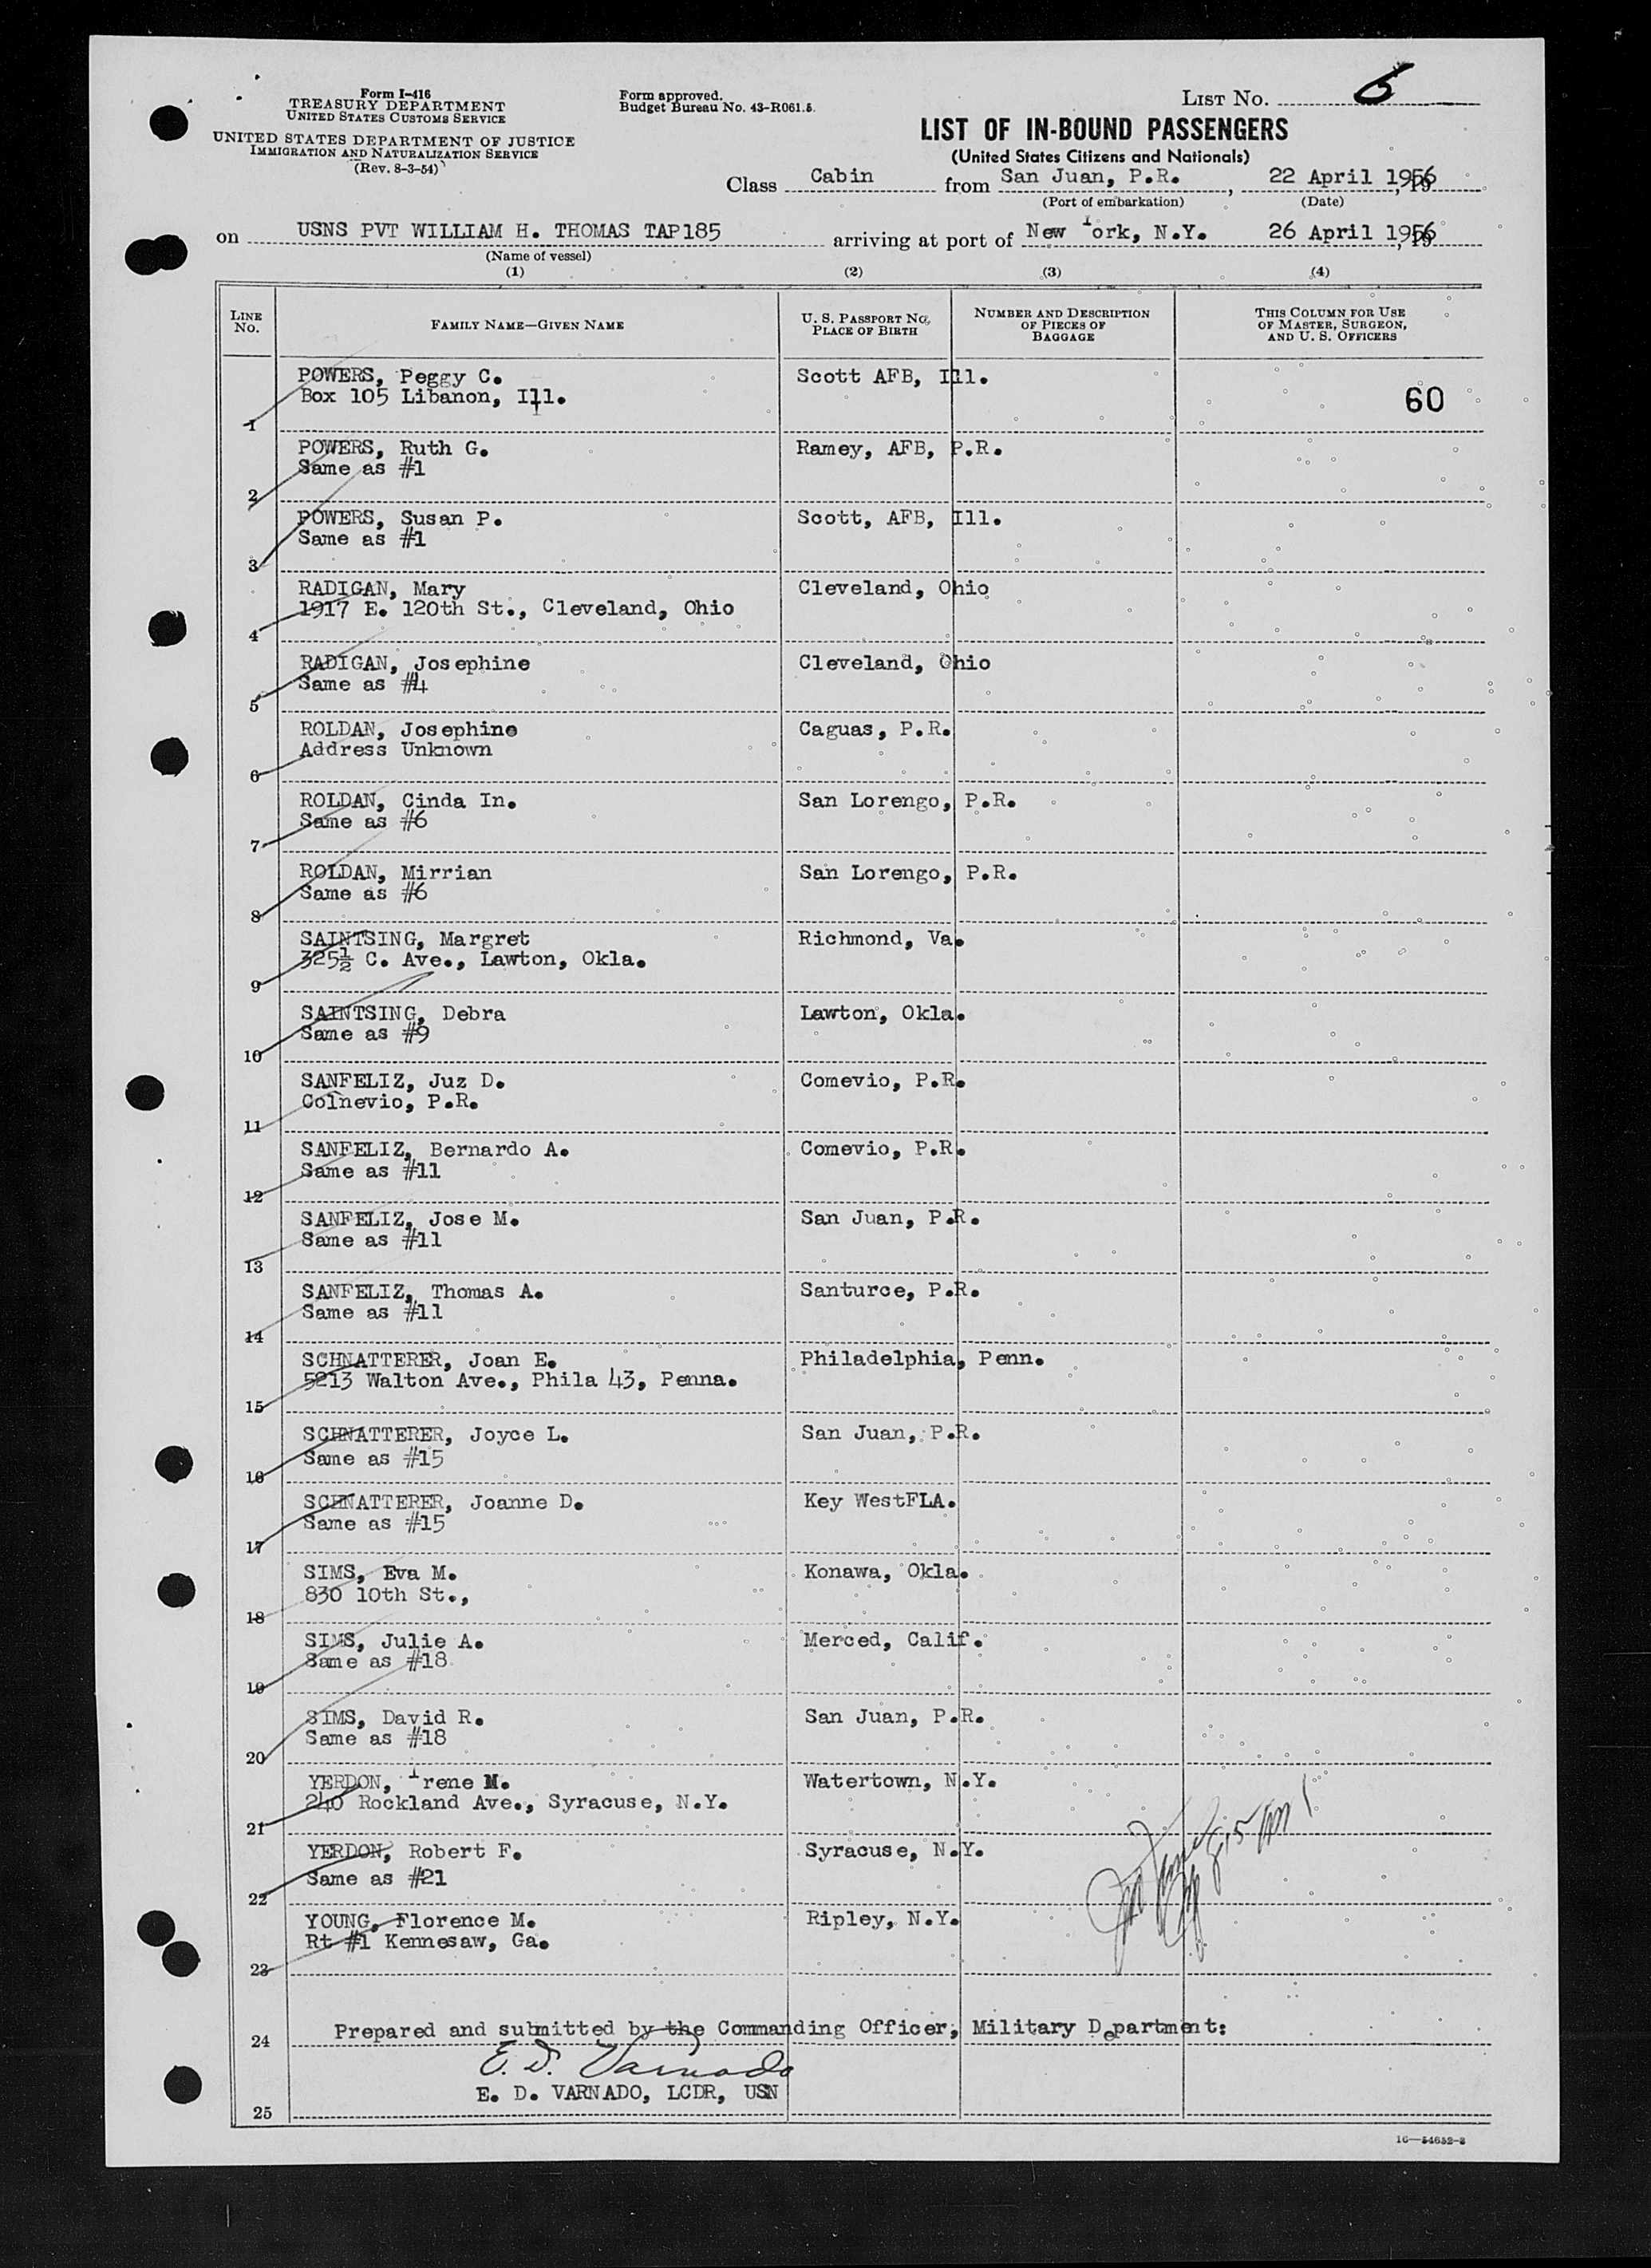 Form I-416
TREASURY DEPARTMENT
UNITED STATES CUSTOMS SERVICE
UNITED STATES DEPARTMENT OF JUSTICE
IMMIGRATION AND NATURALIZATION SERVICE
(Rev. 8-3-54)
Form approved.
Budget Bureau No. 43-R061.5.
LIST NO. 6
LIST OF IN-BOUND PASSENGERS
(United States Citizens and Nationals)
Class Cabin from San Juan, P.R., 22 April 1956
(Port of embarkation) (Date)
on USNS PVT WILLIAM H. THOMAS TAP185 arriving at port of New York, N.Y. 26 April 1956
(Name of vessel)
(1) (2) (3) (4)
LINE NO. FAMILY NAME—GIVEN NAME U. S. PASSPORT NO. PLACE OF BIRTH NUMBER AND DESCRIPTION OF PIECES OF BAGGAGE THIS COLUMN FOR USE OF MASTER, SURGEON, AND U. S. OFFICERS
POWERS, Peggy C. Scott AFB, Ill.
Box 105 Libanon, Ill. 60
1
POWERS, Ruth G. Ramey, AFB, P.R.
Same as #1
2
POWERS, Susan P. Scott, AFB, Ill.
Same as #1
3
RADIGAN, Mary Cleveland, Ohio
1917 E. 120th St., Cleveland, Ohio
4
RADIGAN, Josephine Cleveland, Ohio
Same as #4
5
ROLDAN, Josephine Caguas, P.R.
Address Unknown
6
ROLDAN, Cinda In. San Lorengo, P.R.
Same as #6
7
ROLDAN, Mirrian San Lorengo, P.R.
Same as #6
8
SAINTSING, Margret Richmond, Va.
325½ C. Ave., Lawton, Okla.
9
SAINTSING, Debra Lawton, Okla.
Same as #9
10
SANFELIZ, Juz D. Comevio, P.R.
Colnevio, P.R.
11
SANFELIZ, Bernardo A. Comevio, P.R.
Same as #11
12
SANFELIZ, Jose M. San Juan, P.R.
Same as #11
13
SANFELIZ, Thomas A. Santurce, P.R.
Same as #11
14
SCHNATTERER, Joan E. Philadelphia, Penn.
5213 Walton Ave., Phila 43, Penna.
15
SCHNATTERER, Joyce L. San Juan, P.R.
Same as #15
16
SCHNATTERER, Joanne D. Key WestFLA.
Same as #15
17
SIMS, Eva M. Konawa, Okla.
830 10th St.,
18
SIMS, Julie A. Merced, Calif.
Same as #18
19
SIMS, David R. San Juan, P.R.
Same as #18
20
YERDON, Irene M. Watertown, N.Y.
240 Rockland Ave., Syracuse, N.Y.
21
YERDON, Robert F. Syracuse, N.Y.
Same as #21
22
YOUNG, Florence M. Ripley, N.Y.
Rt #1 Kennesaw, Ga.
23
Prepared and submitted by the Commanding Officer, Military Department:
24
E. D. Varnado
E. D. VARNADO, LCDR, USN
25
16—54652-2